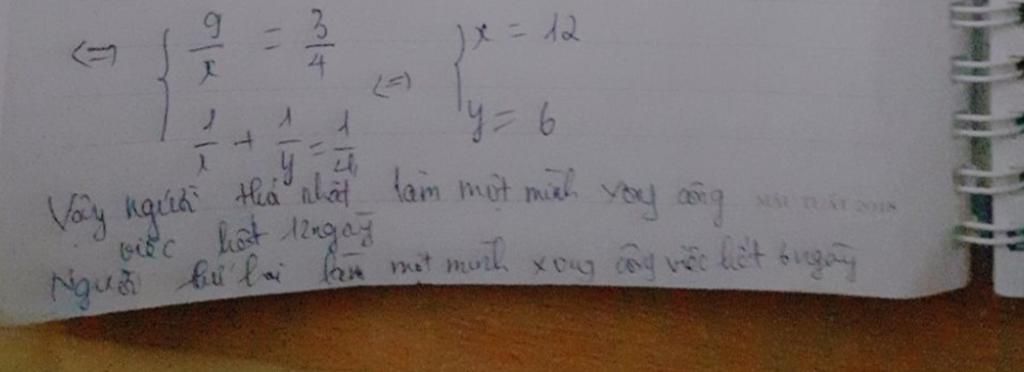 <=> { 9/x = 3/4 <=> { x = 12
1/x + 1/y = 1/4 y = 6
Vậy người thứ nhất làm một mình xong công
việc hết 12ngày
Người thứ hai làm một mình xong công việc hết 6ngày